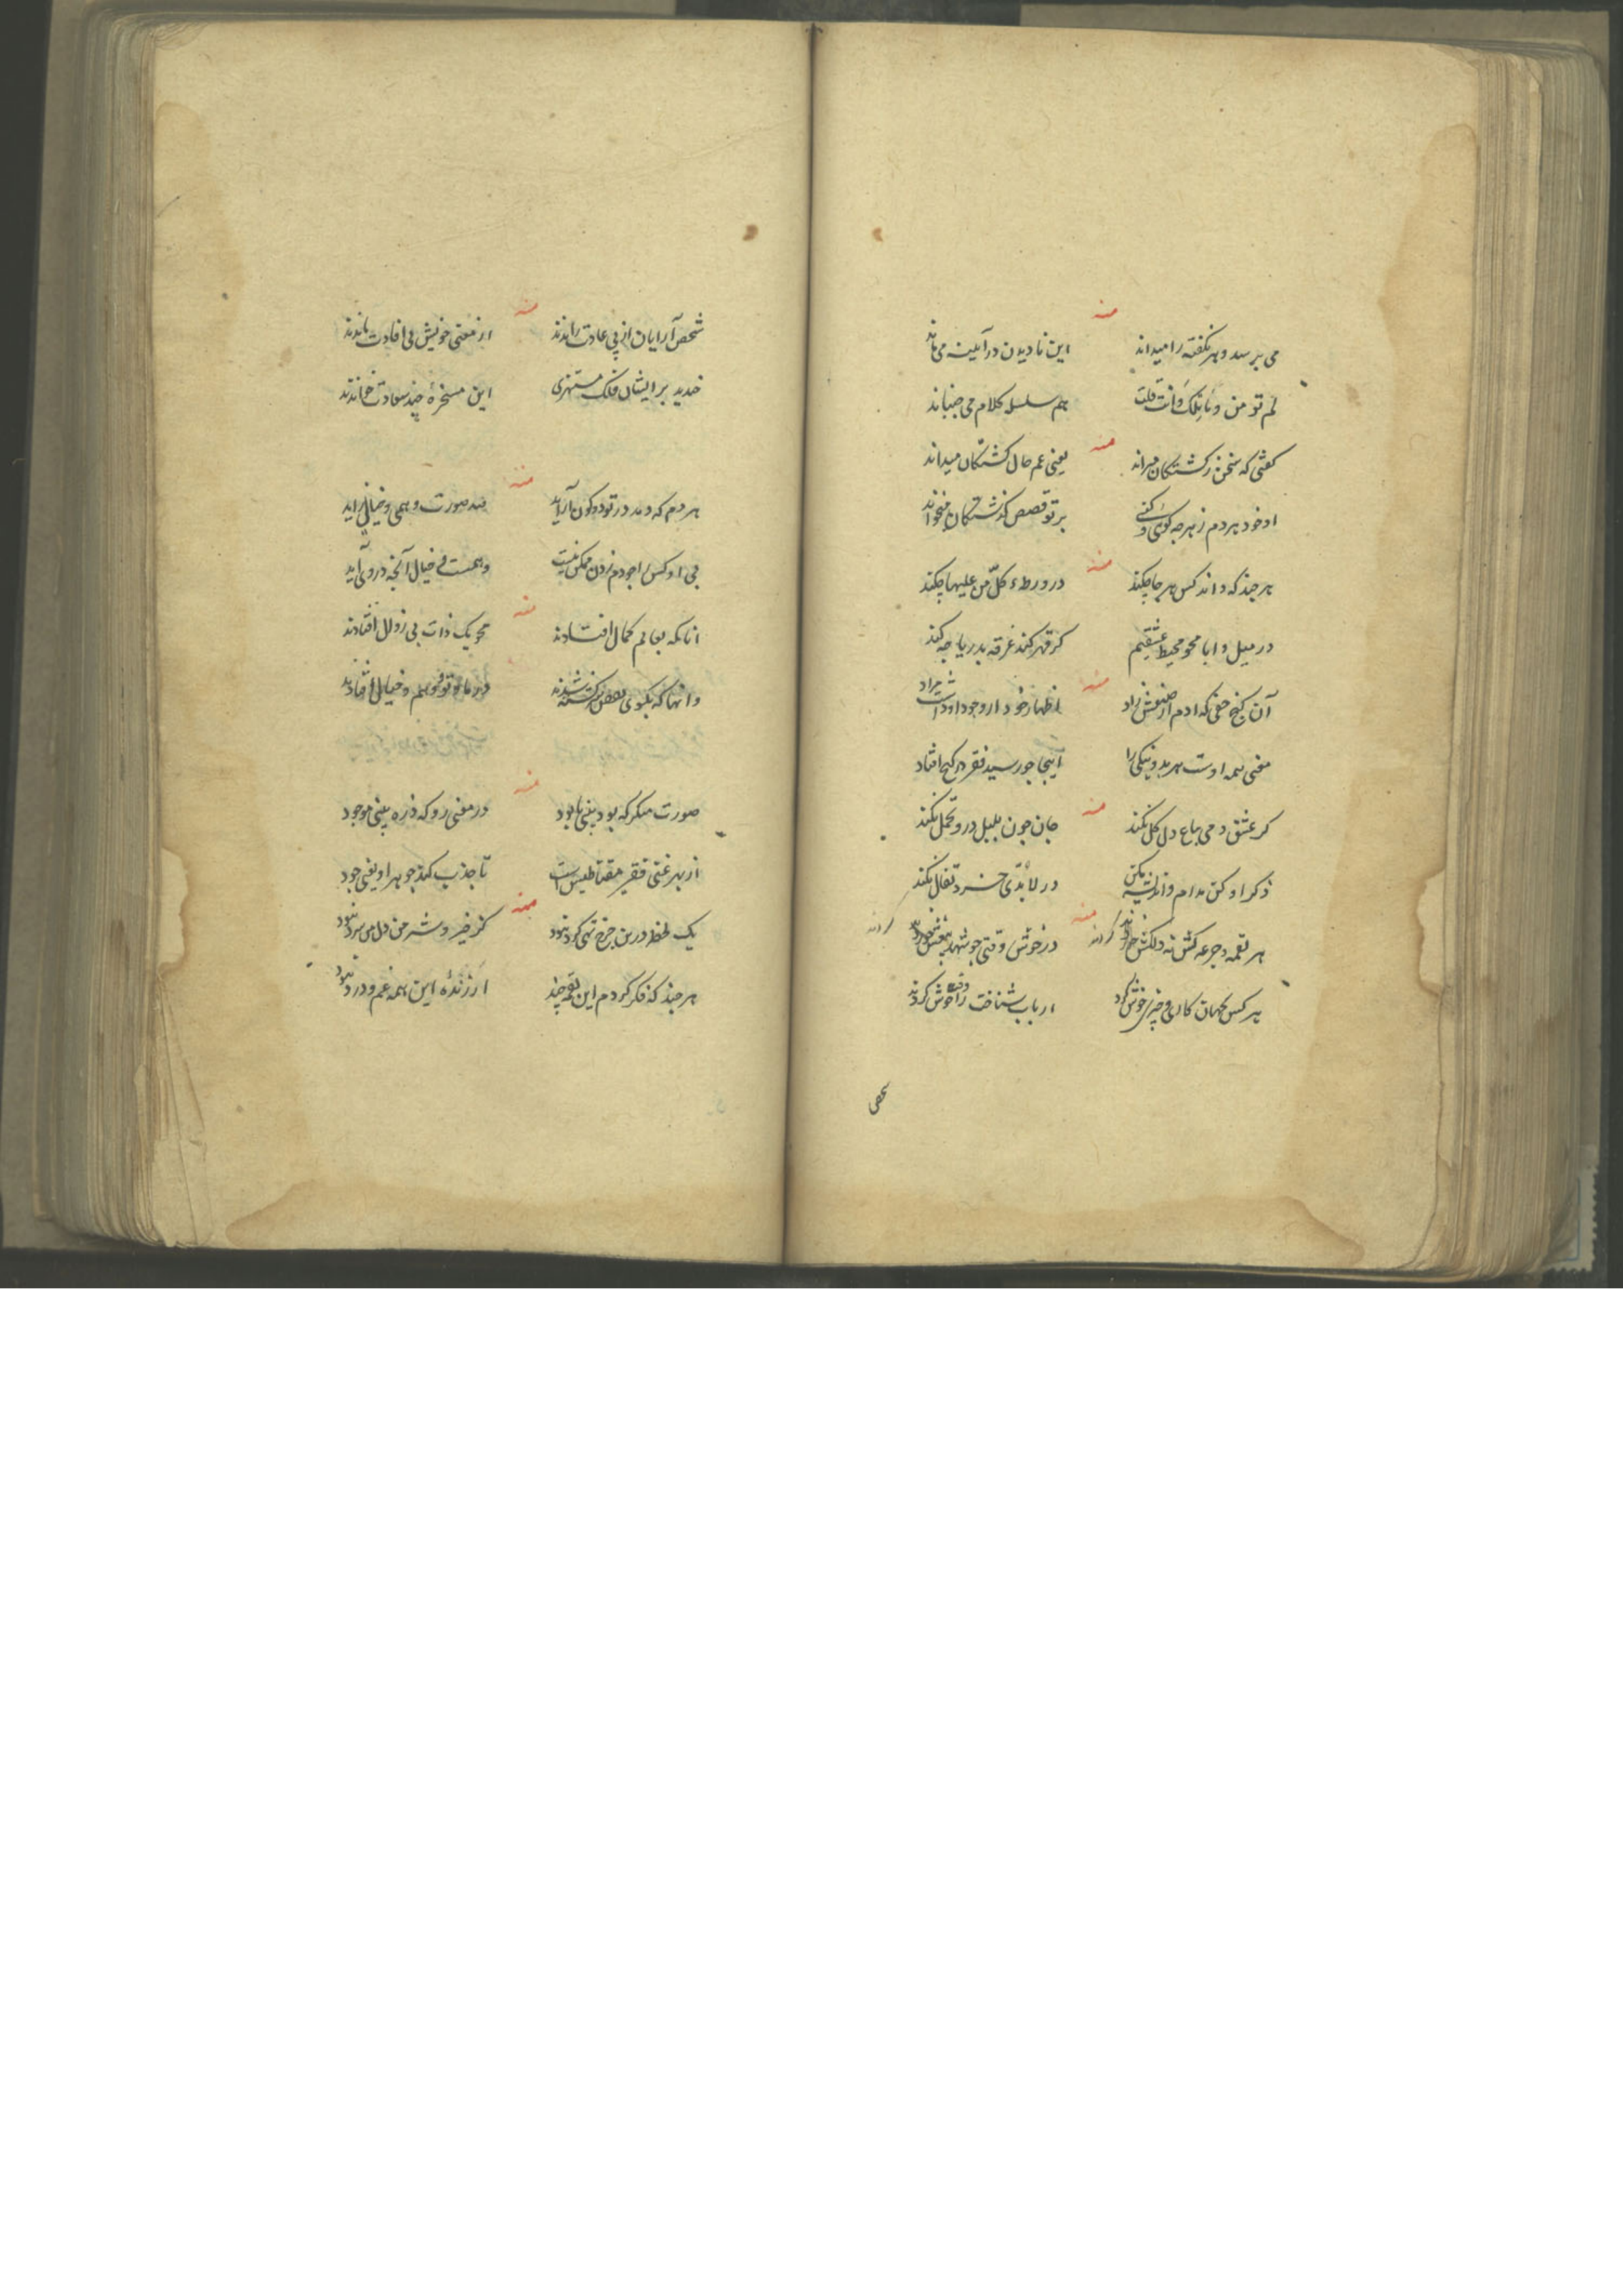 منه
می پرسد و هر نکفته را میداند این نادیدن در آینه می ماند
لم تو من و کلام می جنباند
منه
کفتی که سخن ز کشتکان میراند یعنی غم حال کشتکان میداند
او خود بر دم ز هرچه کوئی و کنی بر تو قصص کذشتکان میخواند
منه
هر چند که داند کس هر جا چکند در ورطهٔ کل من علیها چکند
در میل و ابا محو محیط عشقیم کر قهر کند غرقه بدریا چه کند
منه
آن کنج خفی که ادم از صنعش زاد اظهار خود از وجود او داشت مراد
معنی همه اوست هر بد و نیکی را اینجا چو رسید فقر در کنج افتاد
منه
کر عشق دمی باغ دل کل نکند جان چون بلبل درو تحمل نکند
ذکر او کن مدام و اندیشه مکن در لابدی خرد تغافل نکند
منه
هر لقمه و جرعه کش نه دلکش خوردند در خوش وقتی چو شهد بیغش خوردند
هر کس بجهان کاری و چیزی خوش کرد ارباب شناخت وقت را خوش کردند
منه
شخص آرایان از پی عادت راندند از معنی خویش بی افادت ماندند
خندید بر ایشان فلک مستهزی این مسخرهٔ چند سعادت خواندند
منه
هر دم که دمد در تو دو کون آراید صد صورت وهمی و خیالی زاید
بی او کس را چو دم زدن ممکن نیست وهمست و خیال آنچه در وی آید
منه
آنانکه بعالم کمال افتادند محو یک ذات بی زوال افتادند
وانها که بکوی در ماو تو و وهم و خیال افتادند
منه
صورت منکر که بود یعنی نابود در معنی رو که ذره یعنی موجود
از بهر غنی فقیر مقناطیس است تا جذب کند جوهر او یعنی جود
منه
یک لحظه درین چرخ تهی کرد نبود کز خیر و شر من دل من سرد نبود
هر چند که فکر کردم این لقمه چند ارزندهٔ این همه غم و درد نبود